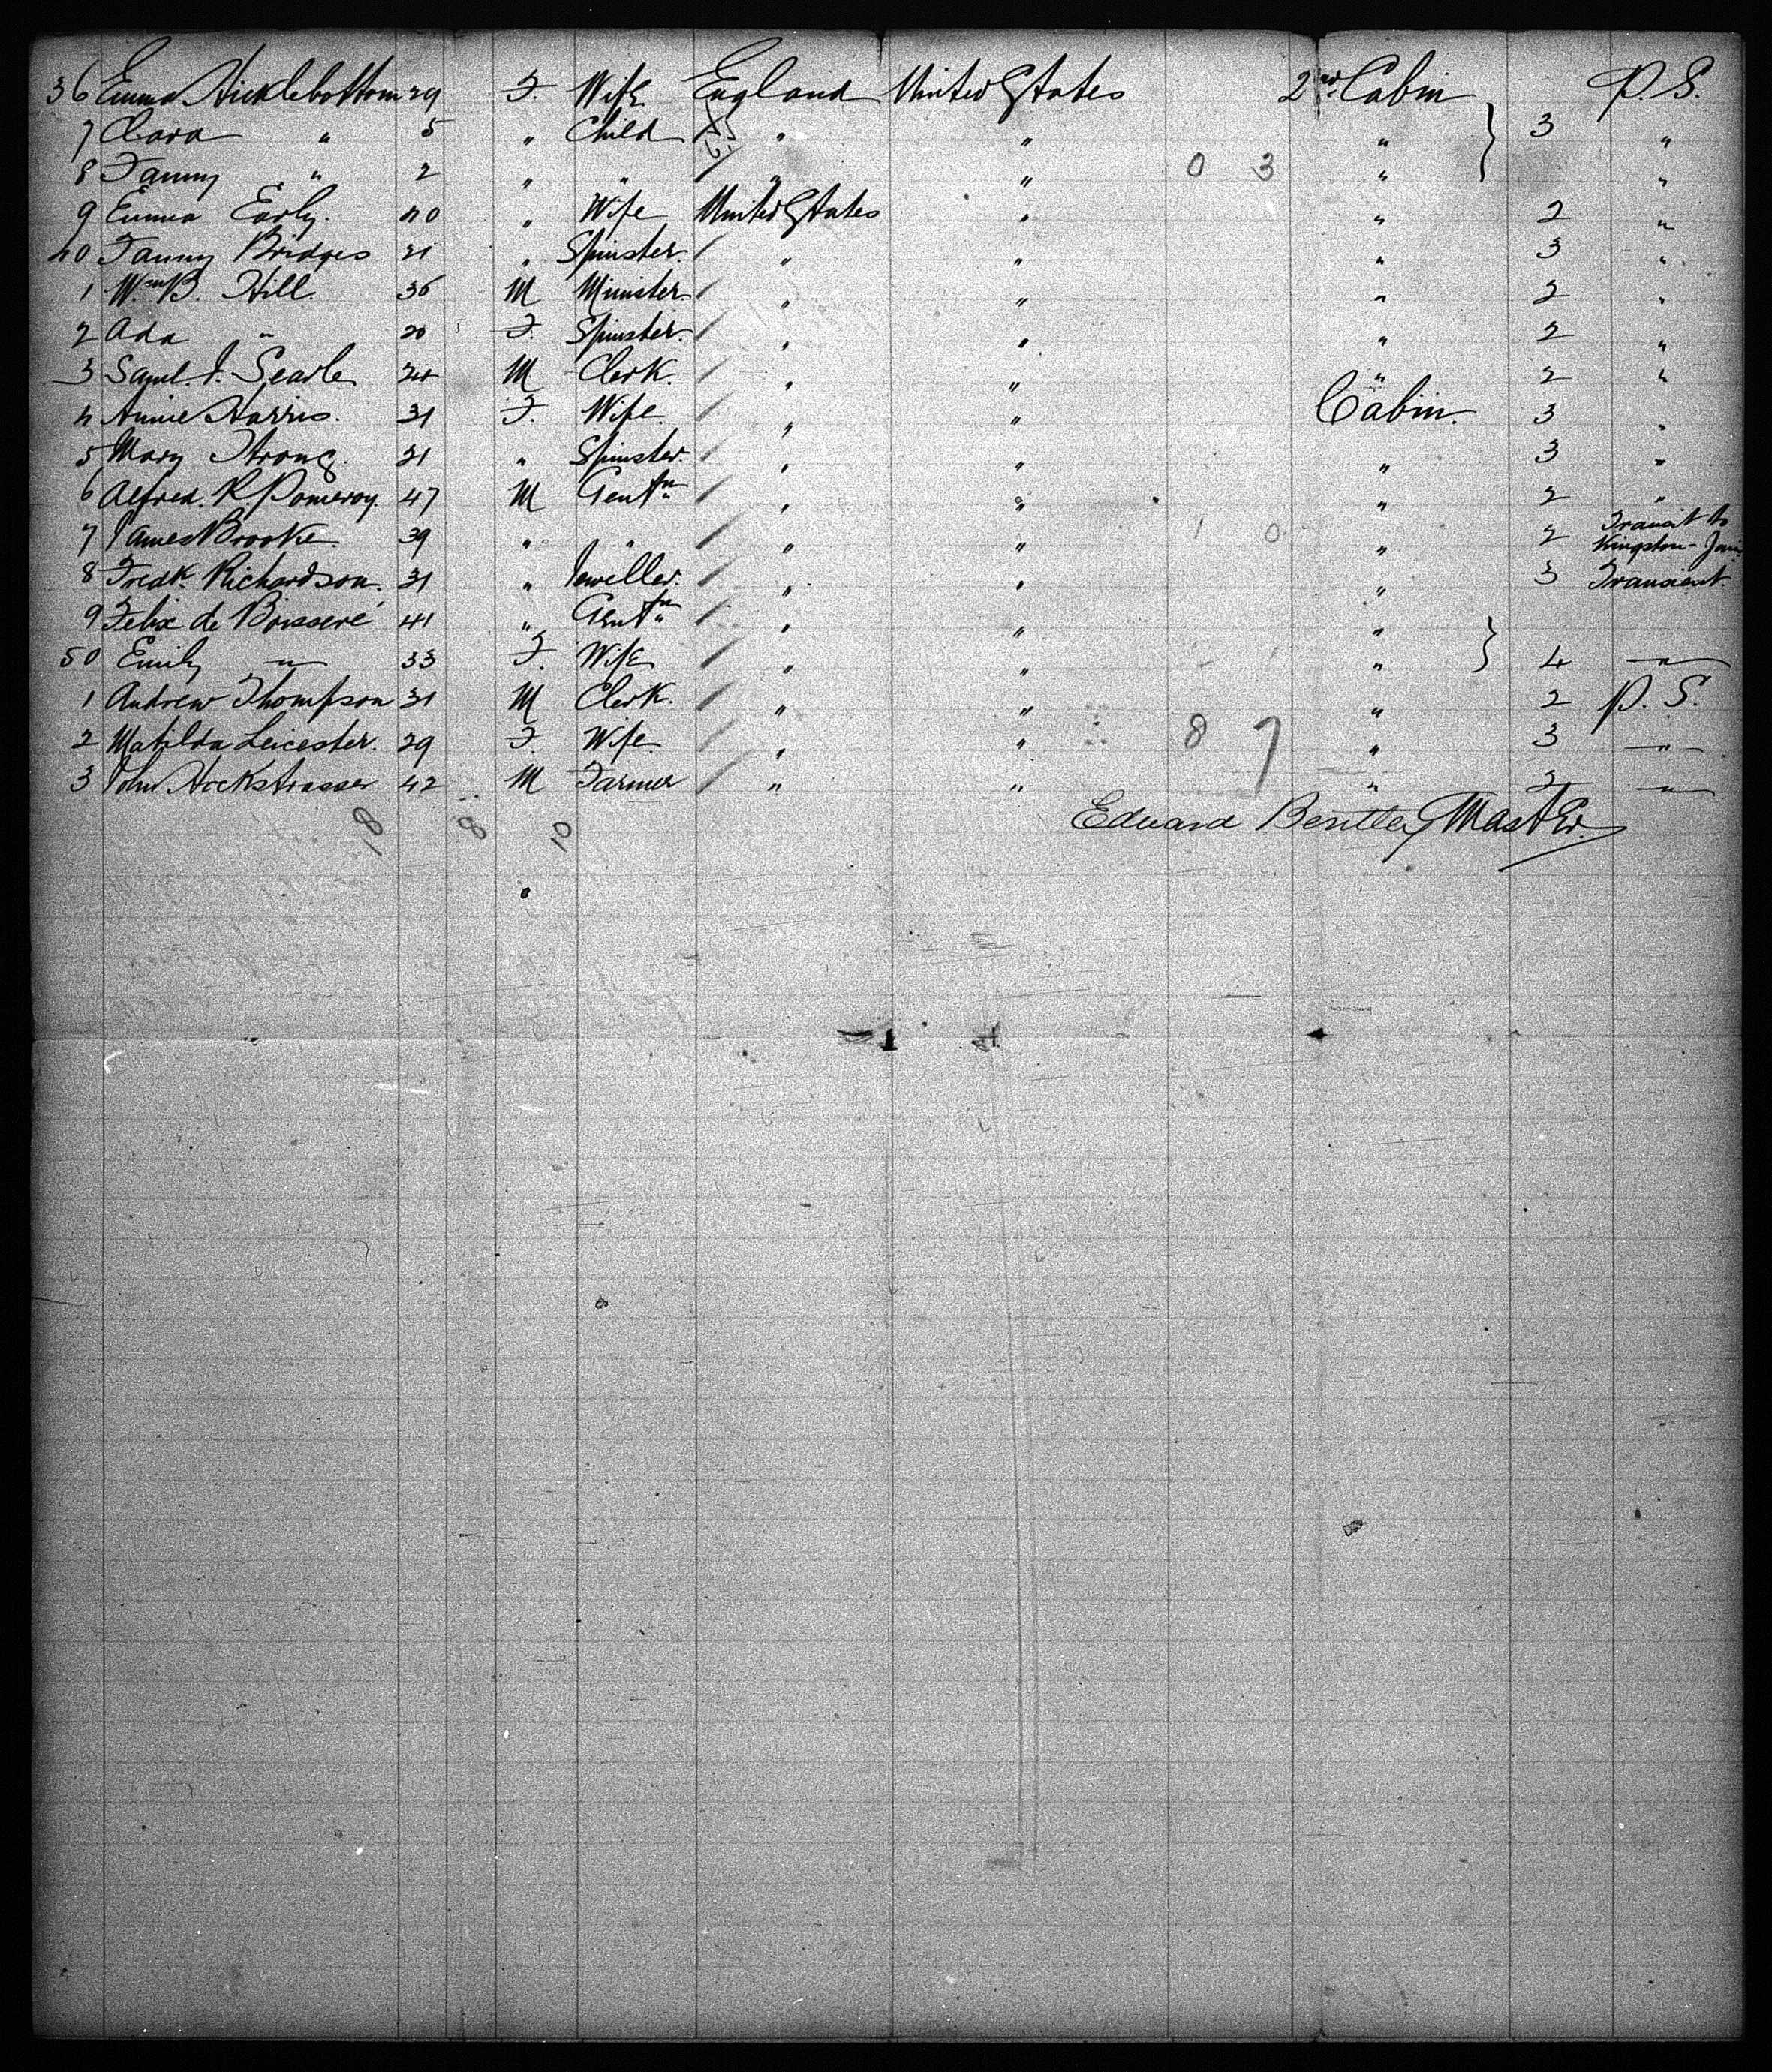 36 Emma Hicklebottom 29 F. Wife England United States 2nd Cabin P. S.
7 Clara " 5 " Child " " " 3 "
8 Fanny " 2 " " " " 0 3 " "
9 Emma Early. 40 " Wife United States " " 2 "
40 Fanny Bridges 21 " Spinster. " " " 3 "
1 Wm B. Hill. 36 M Minister. " " " 2 "
2 Ada " 20 F. Spinster. " " " 2 "
3 Saml. J. Searle 24 M Clerk. " " " 2 "
4 Annie Harris. 31 F. Wife. " " Cabin. 3 "
5 Mary Strong. 21 " Spinster. " " " 3 "
6 Alfred. R. Pomeroy. 47 M Gentn " " " 2 "
7 James Brooke. 39 " " " " 1 0 " 2 Transit to Kingston - Jam
8 Fredk. Richardson. 31 " Jeweller. " " " 3 Transient.
9 Felix de Boisseré 41 " Gentn " " "
50 Emily " 33 F. Wife " " " 4 "
1 Andrew Thompson 31 M Clerk. " " " 2 P. S.
2 Matilda Leicester. 29 F. Wife. " " 8 7 " 3 "
3 John Hockstrasser 42 M Farmer " " " 2 "
Edward Bentley Master.
18 8 10